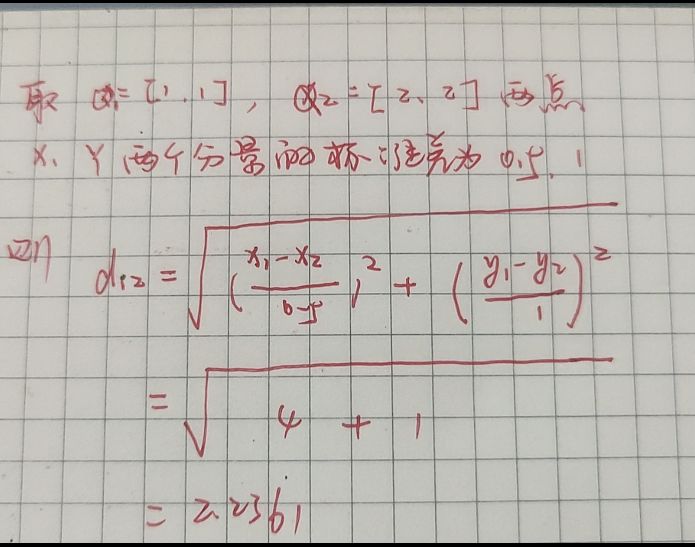 取 ①=[1,1], ②=[2,2] 两点
X、Y 两个分量的标准差为 0.5、1
则 d₁₂ = √((x₁-x₂)/0.5)² + ((y₁-y₂)/1)²
= √4 + 1
= 2.2361